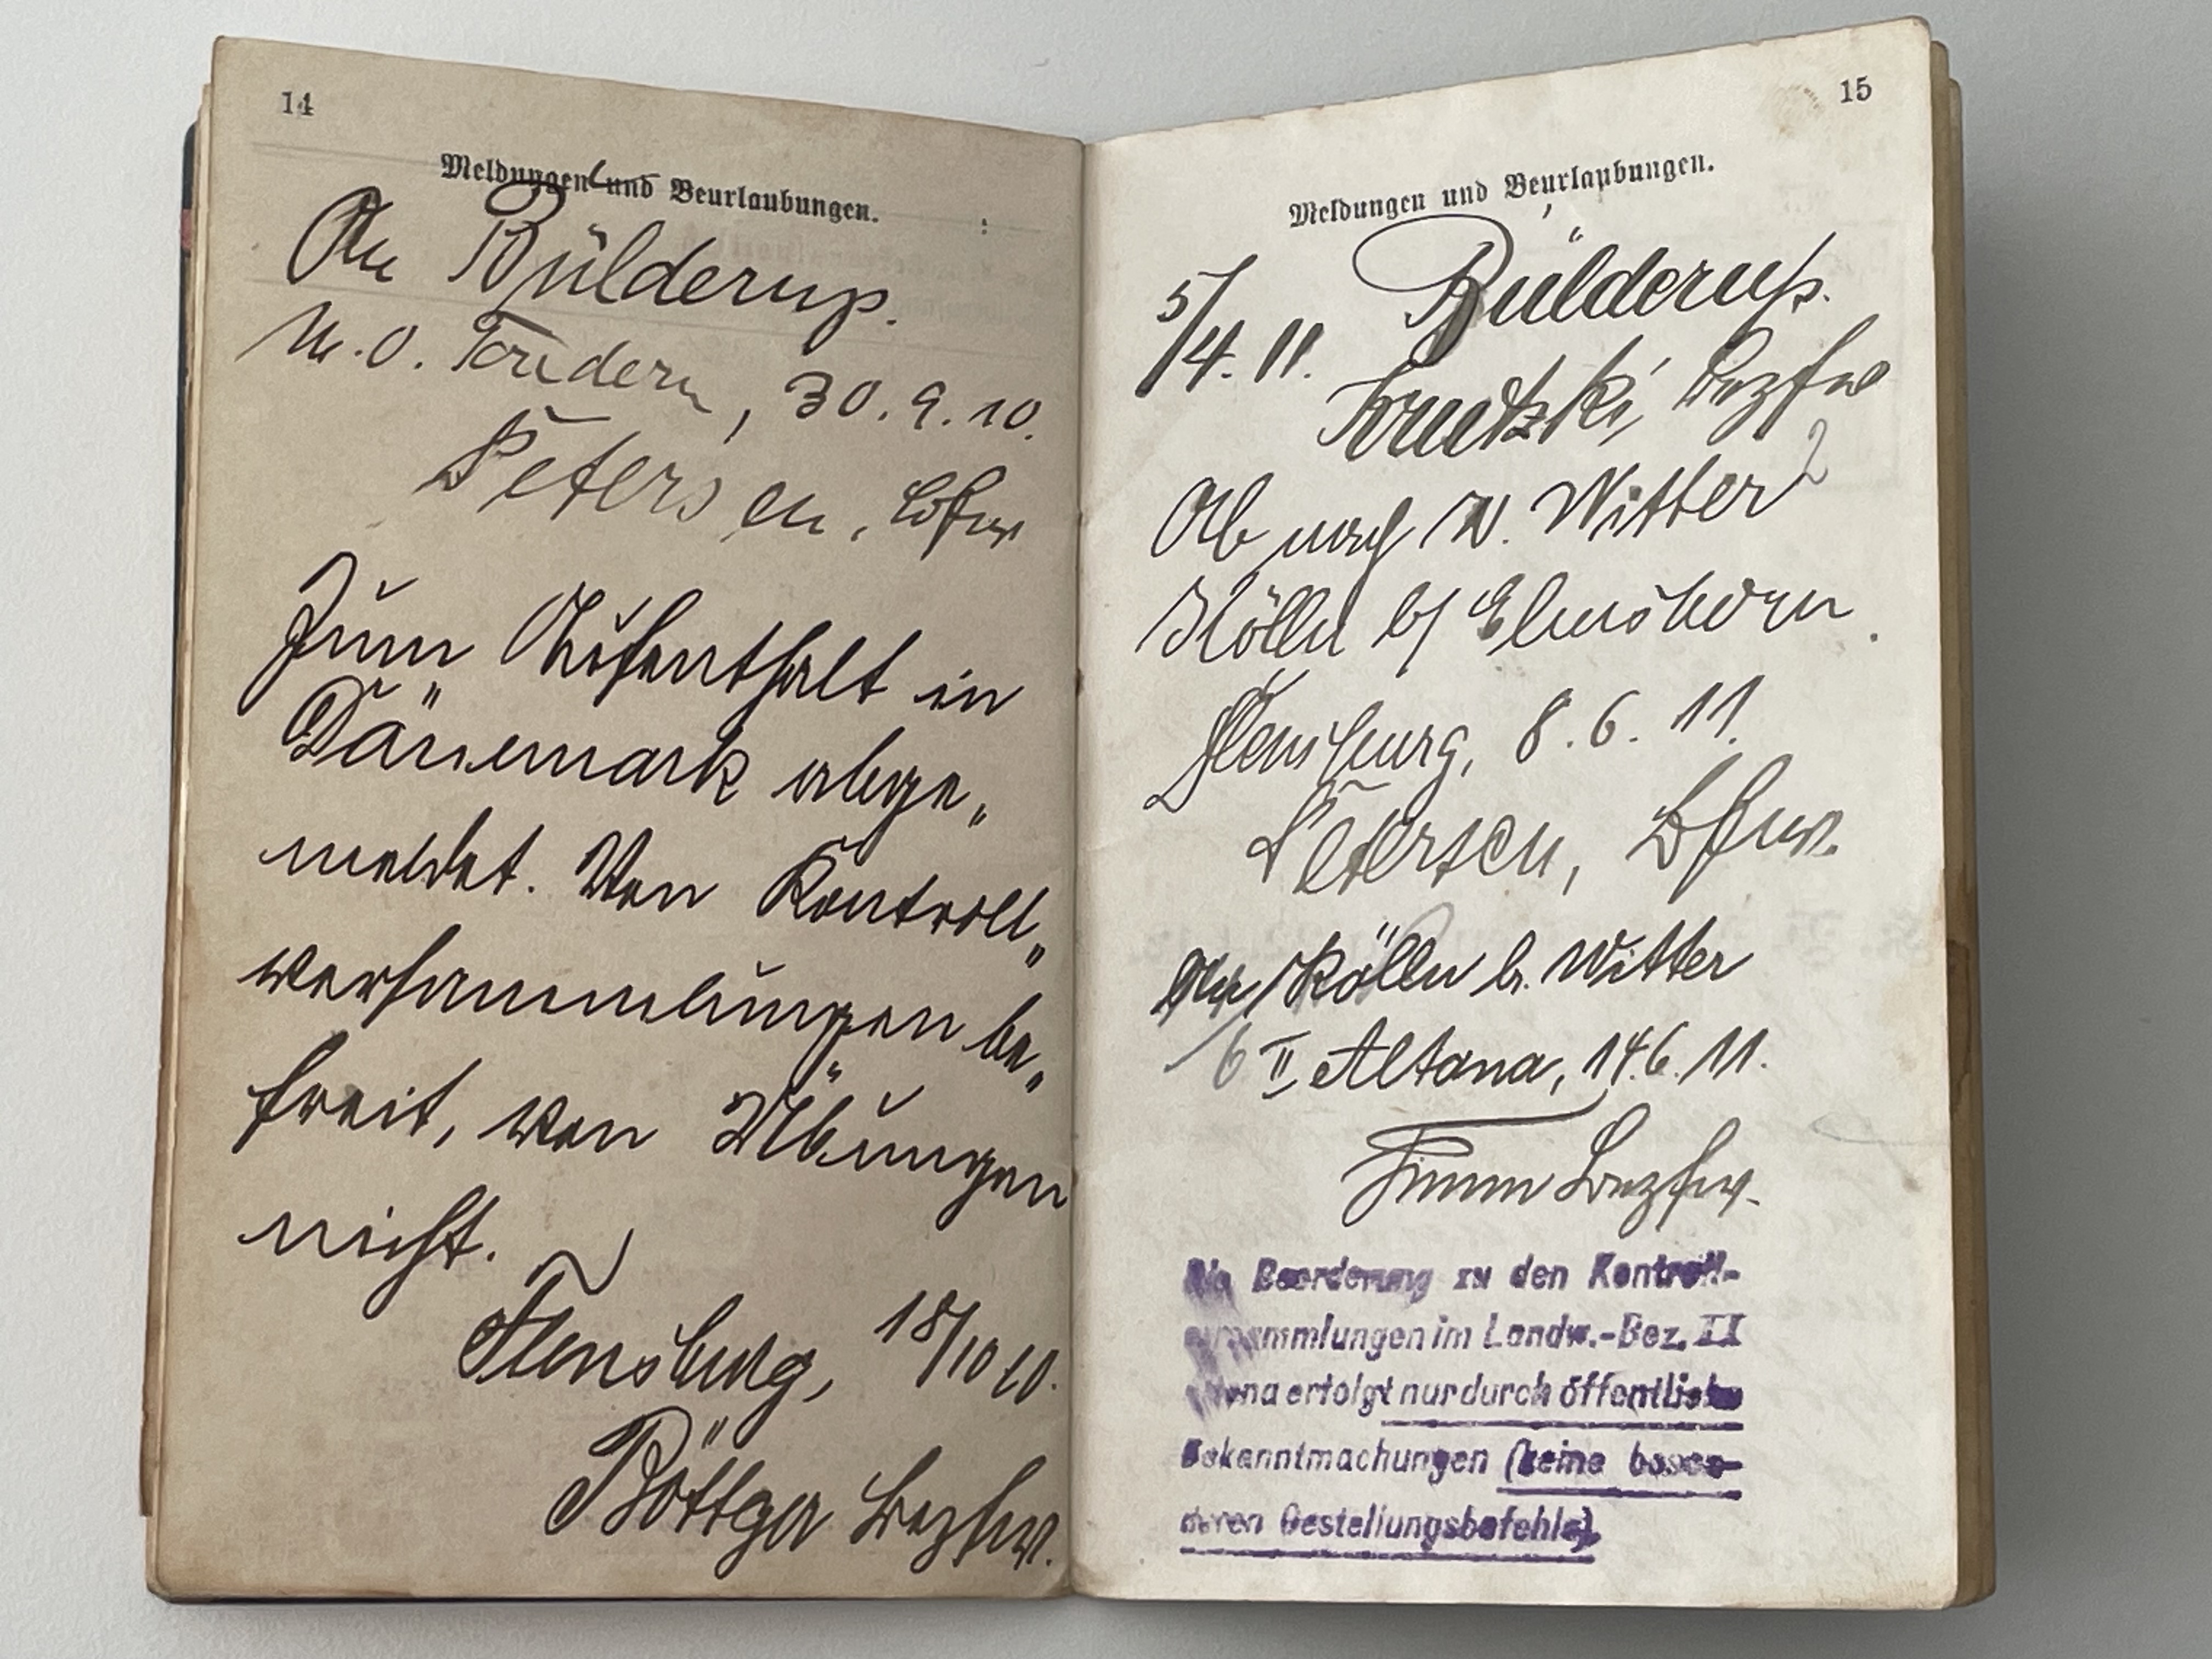 14
Meldungen und Beurlaubungen.
An Bülderup.
M.O. Tondern, 30.9.10.
Petersen, Bzfw
Zum Aufenthalt in
Dänemark abge„
meldet. Von Kontroll„
versammlungen be„
freit, von Übungen
nicht.
Flensburg, 18/10 10.
Böttger Bezfw.
15
Meldungen und Beurlaubungen.
5/4. 11. Bülderup.
Bezfw
2
Ab nach W. Witter
Kölln b/ Elmshorn.
Flensburg, 8.6.11.
Petersen, Bzfw.
Kölln b. Witter
6 II Altona, 14.6.11.
Timm Bezfw.
Die Beorderung zu den Kontroll-
versammlungen im Landw.-Bez. II
Altona erfolgt nur durch öffentliche
Bekanntmachungen (keine beson-
deren Gestellungsbefehle)